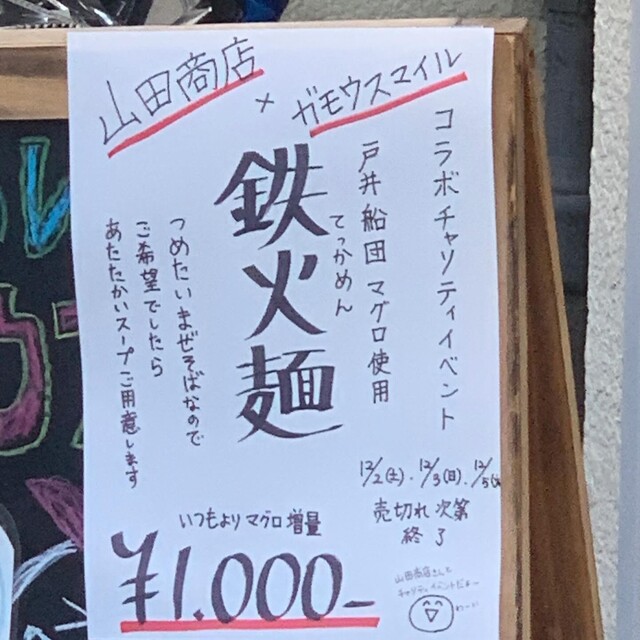 山田商店
×
ガモウスマイル
コラボチャリティイベント
戸井船団マグロ使用
てっかめん
鉄火麺
つめたいまぜそばなので
ご希望でしたら
あたたかいスープご用意します
12/2(土).12/3(日).12/5(火
売切れ次第
終了
いつもよりマグロ増量
¥1.000-
山田商店さんと
チャリティイベントだぁー
わーい